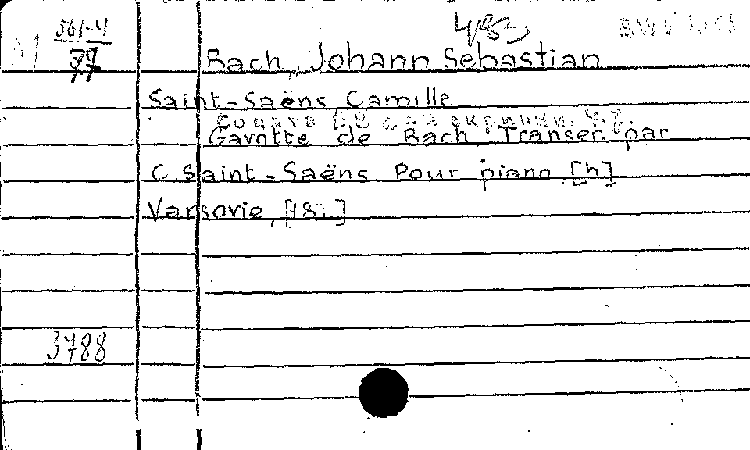 561-4
77
Bach, Johann Sebastian
Saint-Saëns Camille
Gavotte de Bach Transcr. par
C. Saint-Saëns Pour piano [h]
Varsovie, [18..]
3788